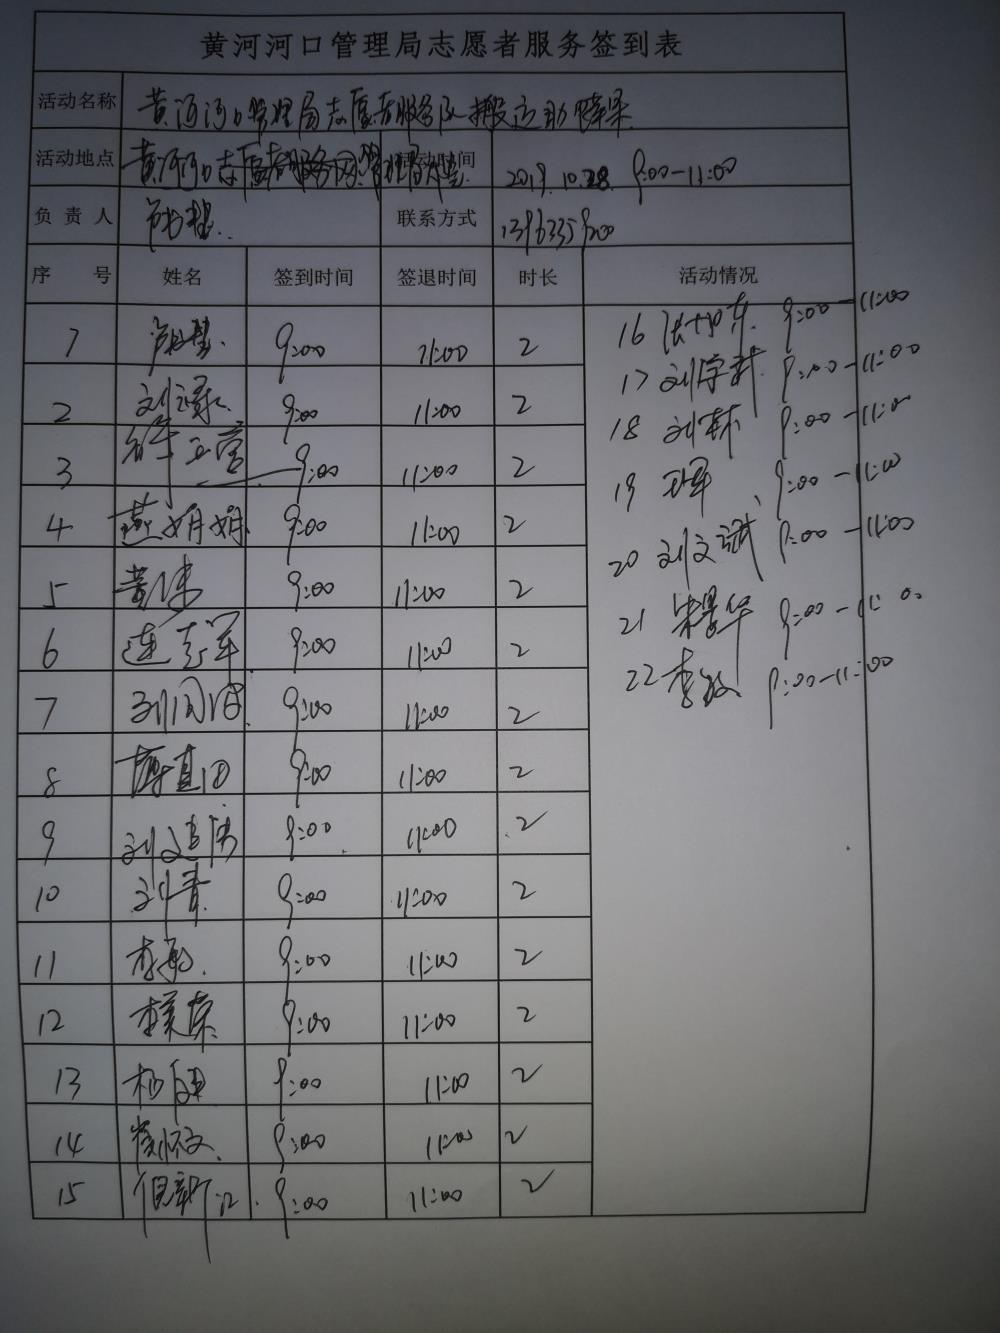 黄河河口管理局志愿者服务签到表
活动名称 黄河河口管理局志愿者服务队搬运助
活动地点 黄河河口志愿者服务 活动时间 2019.10.28. 9:00-11:00
负责人 联系方式
序号 姓名 签到时间 签退时间 时长 活动情况
1 9:00 11:00 2
2 刘 9:00 11:00 2
3 9:00 11:00 2
4 燕娟娟 9:00 11:00 2
5 黄 9:00 11:00 2
6 连志军 9:00 11:00 2
7 刘 9:00 11:00 2
8 9:00 11:00 2
9 刘 9:00 11:00 2
10 刘青 9:00 11:00 2
11 李敏 9:00 11:00 2
12 李美荣 9:00 11:00 2
13 9:00 11:00 2
14 崔怀文 9:00 11:00 2
15 倪新江 9:00 11:00 2
16 9:00-11:00
17 刘学武 9:00-11:00
18 刘 9:00-11:00
19 王军 9:00-11:00
20 刘文斌 9:00-11:00
21 宋景华 9:00-11:00
22 李 9:00-11:00